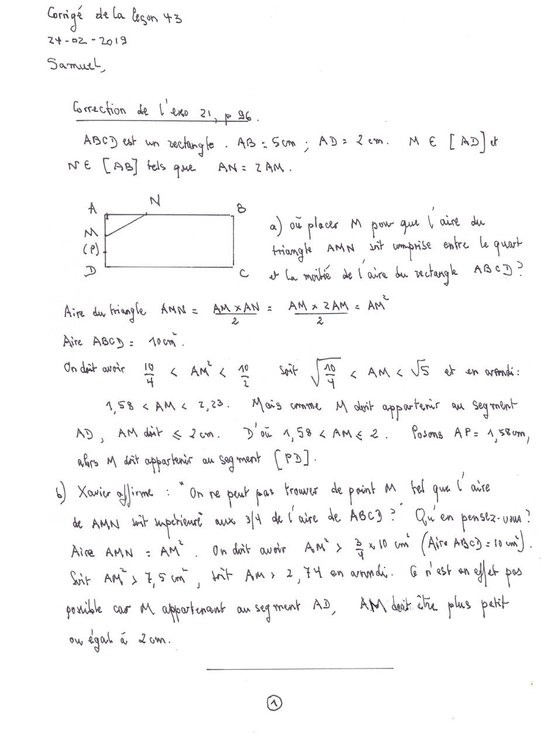 Corrigé de la leçon 43
24-02-2019
Samuel,
Correction de l'exo 21, p 96.
ABCD est un rectangle. AB = 5cm ; AD = 2 cm. M ∈ [AD] et
N ∈ [AB] tels que AN = 2AM.
A N B
M
(P)
D C
a) où placer M pour que l'aire du
triangle AMN soit comprise entre le quart
et la moitié de l'aire du rectangle ABCD ?
Aire du triangle AMN = AM × AN / 2 = AM × 2AM / 2 = AM²
Aire ABCD = 10cm².
On doit avoir 10/4 < AM² < 10/2 Soit √(10/4) < AM < √5 et en arrondi :
1,58 < AM < 2,23. Mais comme M doit appartenir au segment
AD, AM doit ≤ 2cm. D'où 1,58 < AM ≤ 2. Posons AP = 1,58cm,
alors M doit appartenir au segment [PD].
b) Xavier affirme : "On ne peut pas trouver de point M tel que l'aire
de AMN soit supérieure aux 3/4 de l'aire de ABCD ?" Qu'en pensez-vous ?
Aire AMN = AM². On doit avoir AM² > 3/4 × 10 cm² (Aire ABCD = 10 cm²).
Soit AM² > 7,5 cm², soit AM > 2,74 en arrondi. Ce n'est en effet pas
possible car M appartenant au segment AD, AM doit être plus petit
ou égal à 2cm.
1